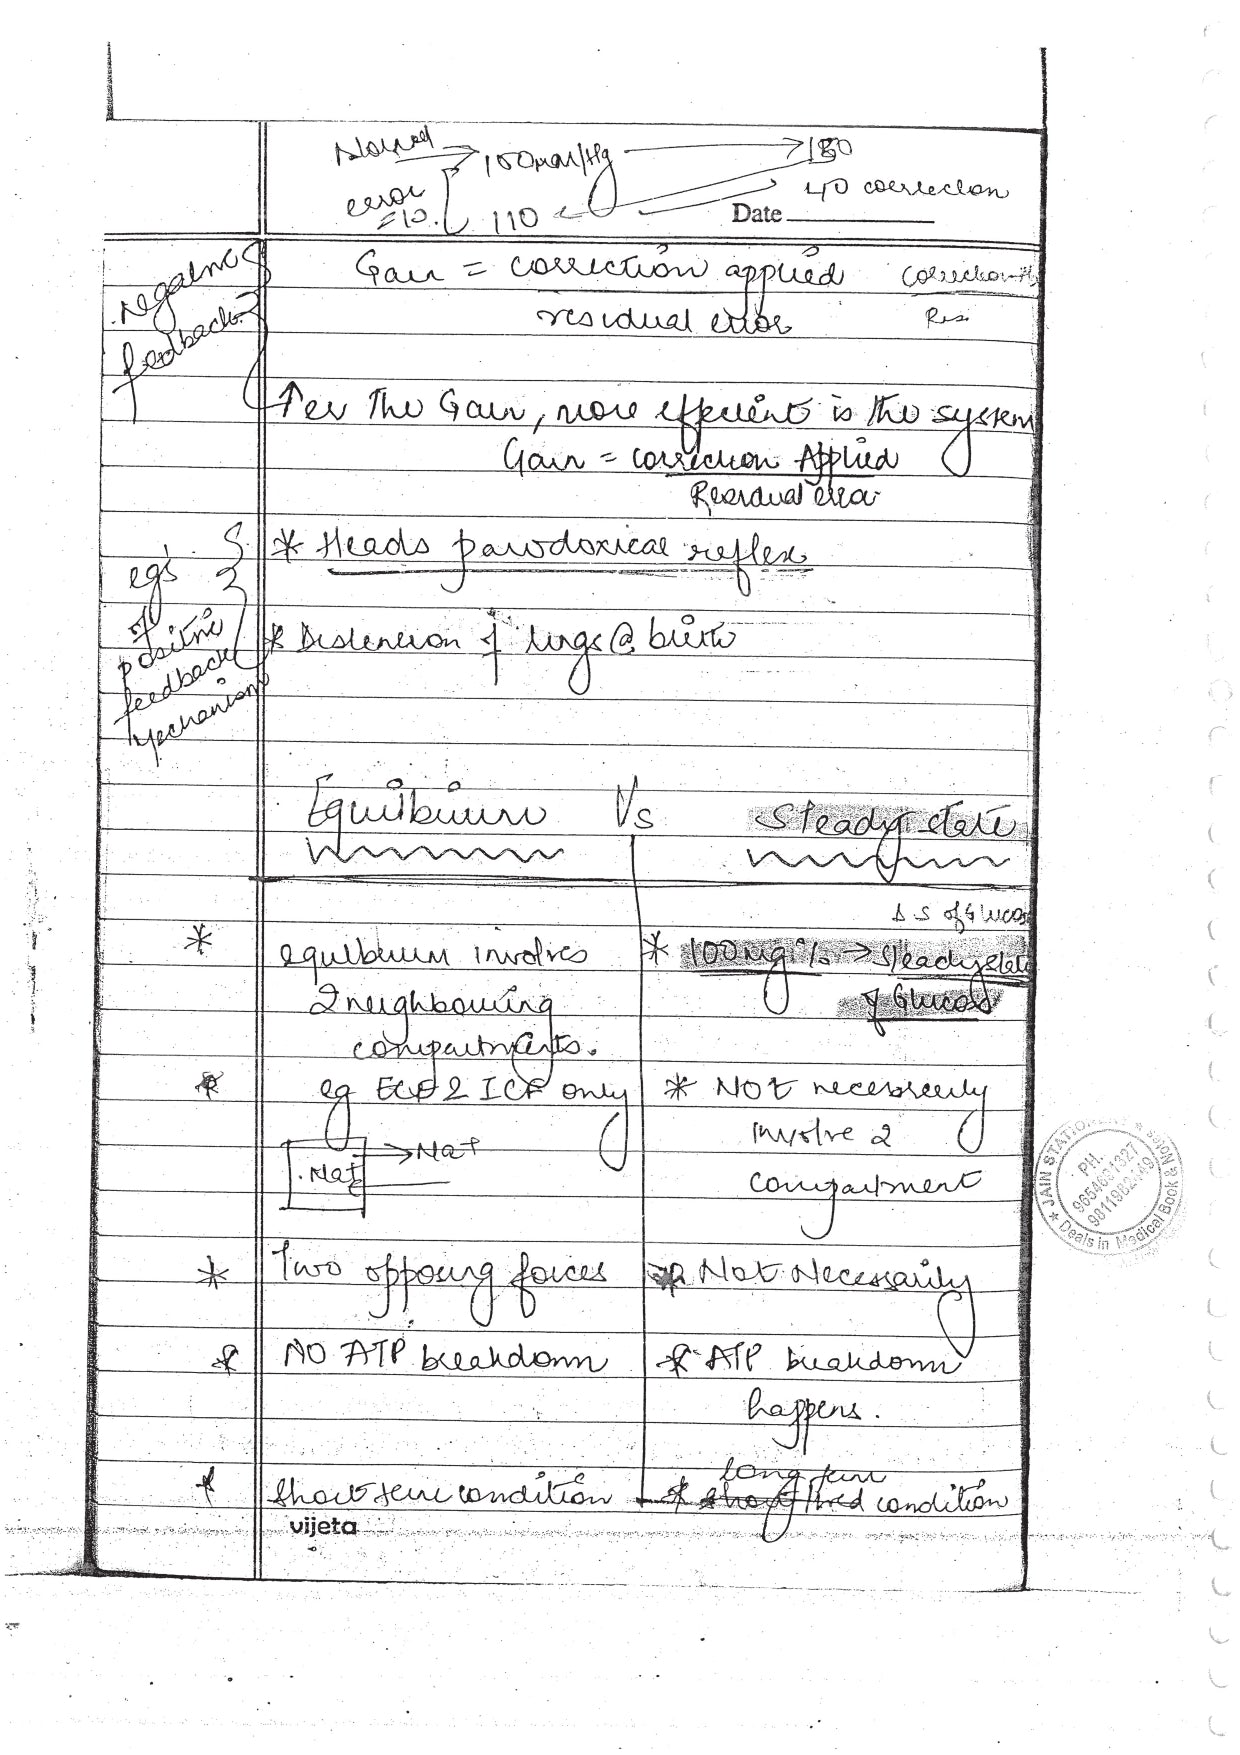 Normal → 100mm/Hg → 150
error = 10. 110 40 correction
Date
Negative feedback
Gain = correction applied
residual error
↑er The Gain, more effecient is the system
Gain = correction Applied
Residual error
egs of positive feedback Mechanism
* Heads paradoxical reflex
* Distension of lungs @ birth
Equilbuium Vs Steady state
* equlbuium involves
2 neighbouring
compartments.
* eg ECF & ICF only
Na+ → Na+
* Two opposing forces
* NO ATP breakdown
* Short term condition
* 100mg% → Steady state
of Glucose
* NOt necessarily
involve 2
compartment
* Not Necessarily
* ATP breakdown
happens.
long term
* condition
vijeta
JAIN STATION
PH.
Deals in Medical Book & Notes